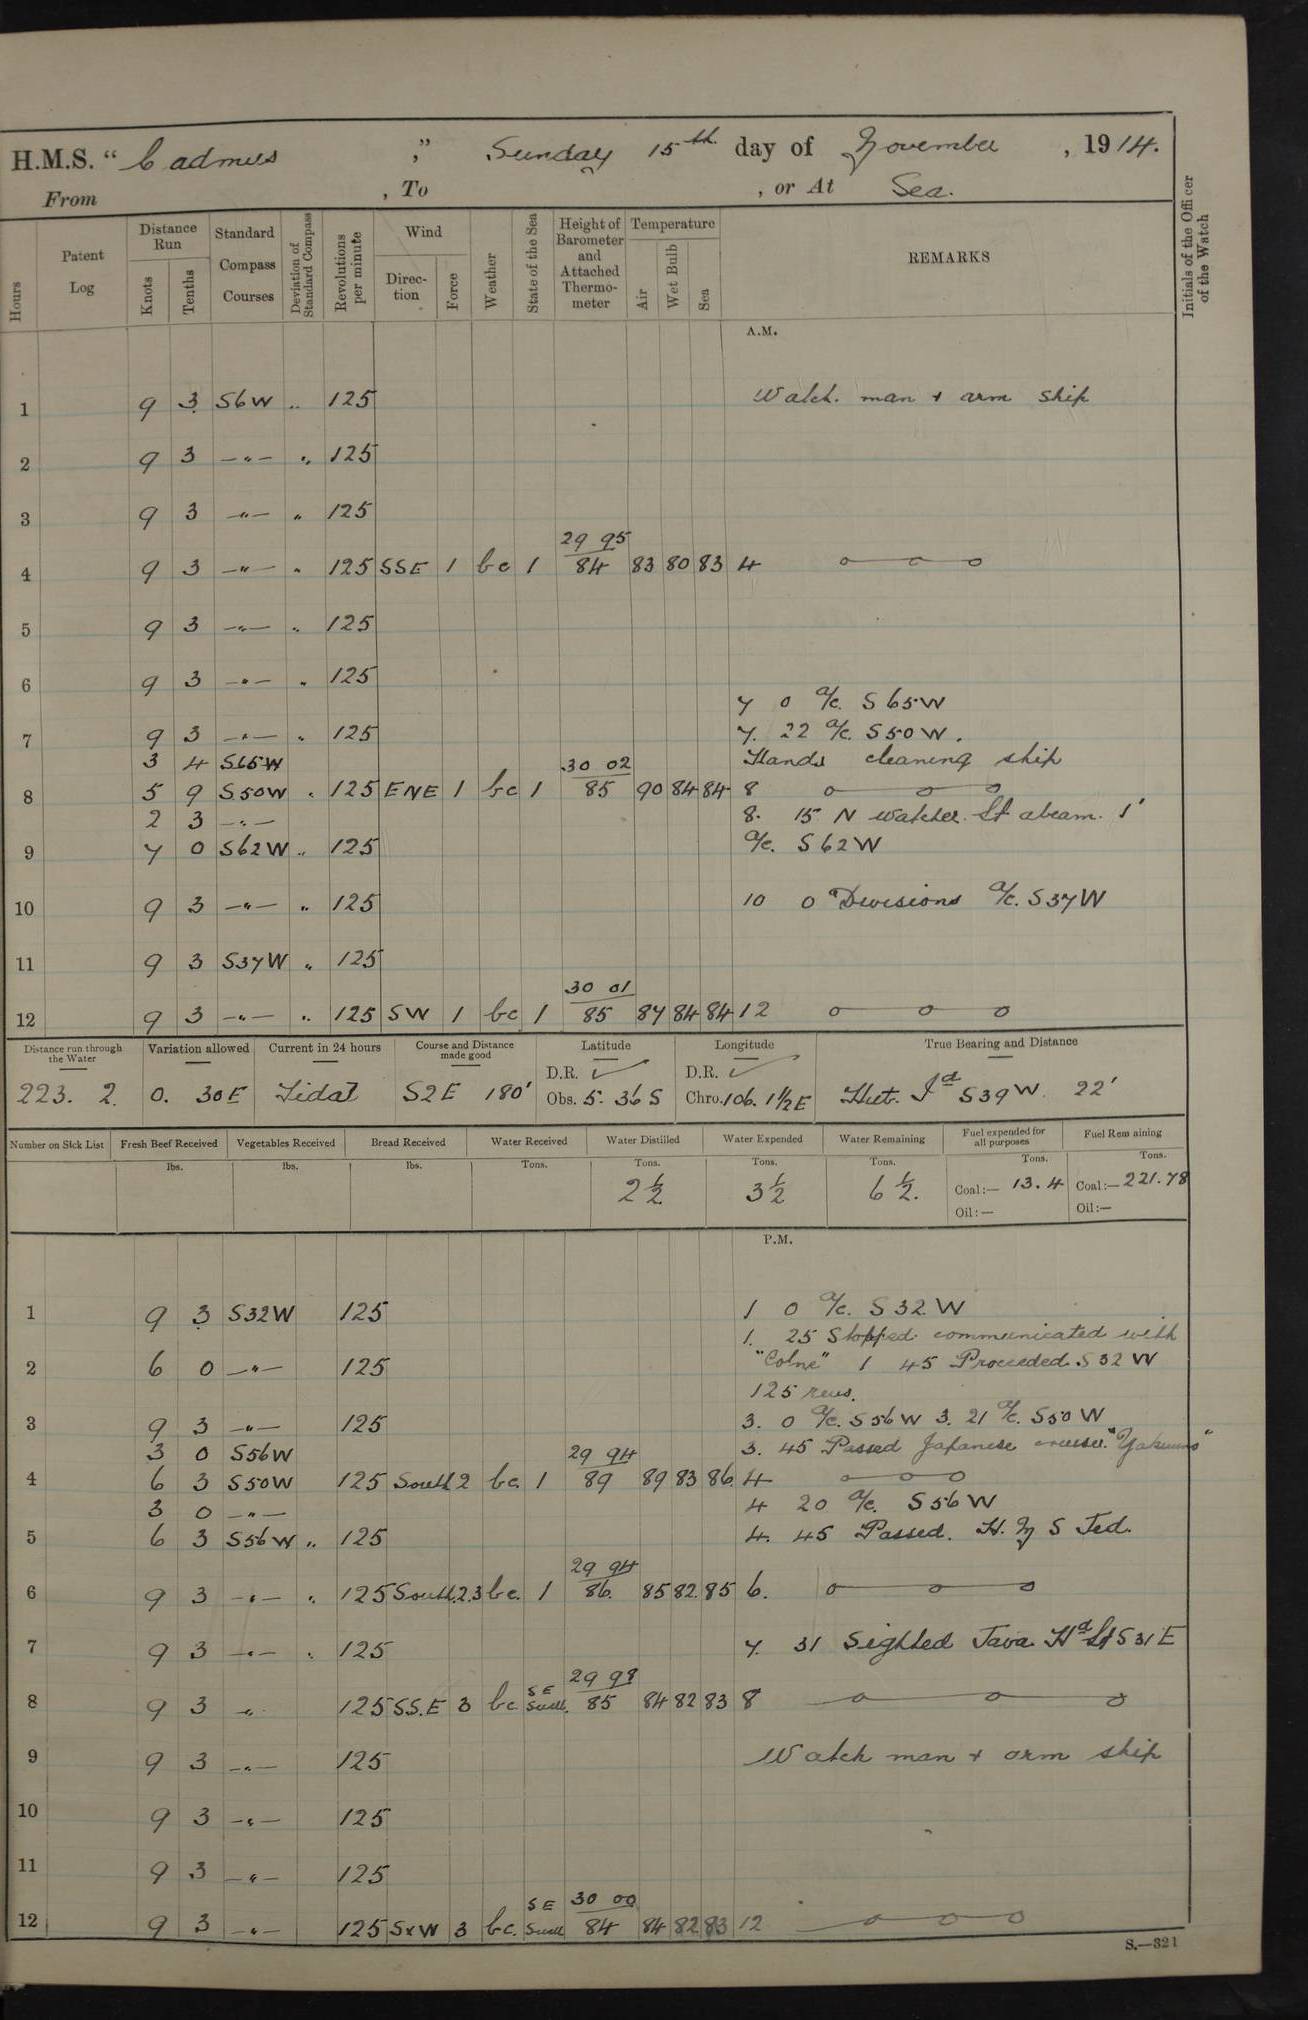 H.M.S. " Cadmus ," Sunday 15th day of November , 1914.
From , To , or At Sea.
Hours Patent Log Distance Run Knots Tenths Standard Compass Courses Deviation of Standard Compass Revolutions per minute Wind Direction Force Weather State of the Sea Height of Barometer and Attached Thermometer Temperature Air Wet Bulb Sea REMARKS Initials of the Officer of the Watch
A.M.
1 9 3 S6W .. 125 Watch. man + arm ship
2 9 3 —"— .. 125
3 9 3 —"— " 125
29 95
4 9 3 —"— " 125 SSE 1 bc 1 84 83 80 83 4 o—o—o
5 9 3 —"— .. 125
6 9 3 —"— " 125
7 0 a/c. S65W
7 9 3 —"— " 125 7. 22 a/c. S50W.
3 4 S65W 30 02 Hands cleaning ship
8 5 9 S50W " 125 ENE 1 bc 1 85 90 84 84 8 o—o—o
2 3 —"— 8. 15 N Watcher Lt abeam. 1'
9 7 0 S62W .. 125 a/c. S62W
10 9 3 —"— .. 125 10 0 Divisions a/c. S37W
11 9 3 S37W " 125
30 01
12 9 3 —"— .. 125 SW 1 bc 1 85 87 84 84 12 o—o—o
Distance run through the Water Variation allowed Current in 24 hours Course and Distance made good Latitude Longitude True Bearing and Distance
D.R. ✓ D.R. ✓
223. 2. 0. 30E Tidal S2E 180' Obs. 5. 36 S Chro. 106. 1½E Hut. Id S39W. 22'
Number on Sick List Fresh Beef Received Vegetables Received Bread Received Water Received Water Distilled Water Expended Water Remaining Fuel expended for all purposes Fuel Remaining
lbs. lbs. lbs. Tons. Tons. Tons. Tons. Tons. Tons.
2½ 3½ 6½. Coal:— 13.4 Coal:— 221.78
Oil:— Oil:—
P.M.
1 9 3 S32W 125 1 0 a/c. S32W
1. 25 Stopped communicated with
2 6 0 —"— 125 "Colne" 1 45 Proceeded S32W
125 revs.
3 9 3 —"— 125 3. 0 a/c. S56W 3. 21 a/c. S50W
3 0 S56W 29 94 3. 45 Passed Japanese cruiser "Yakumo"
4 6 3 S50W 125 South 2 bc. 1 89 89 83 86 4 o—o—o
3 0 —"— 4 20 a/c. S56W
5 6 3 S56W .. 125 4. 45 Passed. H.M.S Jed.
29 94
6 9 3 —"— " 125 South. 2.3 bc. 1 86. 85 82 85 6. o—o—o
7 9 3 —"— . 125 7. 31 Sighted Java Hd Lt S31E
29 98
8 9 3 " 125 SS.E 3 bc SE Swell. 85 84 82 83 8 o—o—o
9 9 3 —"— 125 Watch man + arm ship
10 9 3 —"— 125
11 9 3 —"— 125
30 00
12 9 3 —"— 125 SxW 3 bc. SE Swell 84 84 82 83 12 o—o—o
S.—321